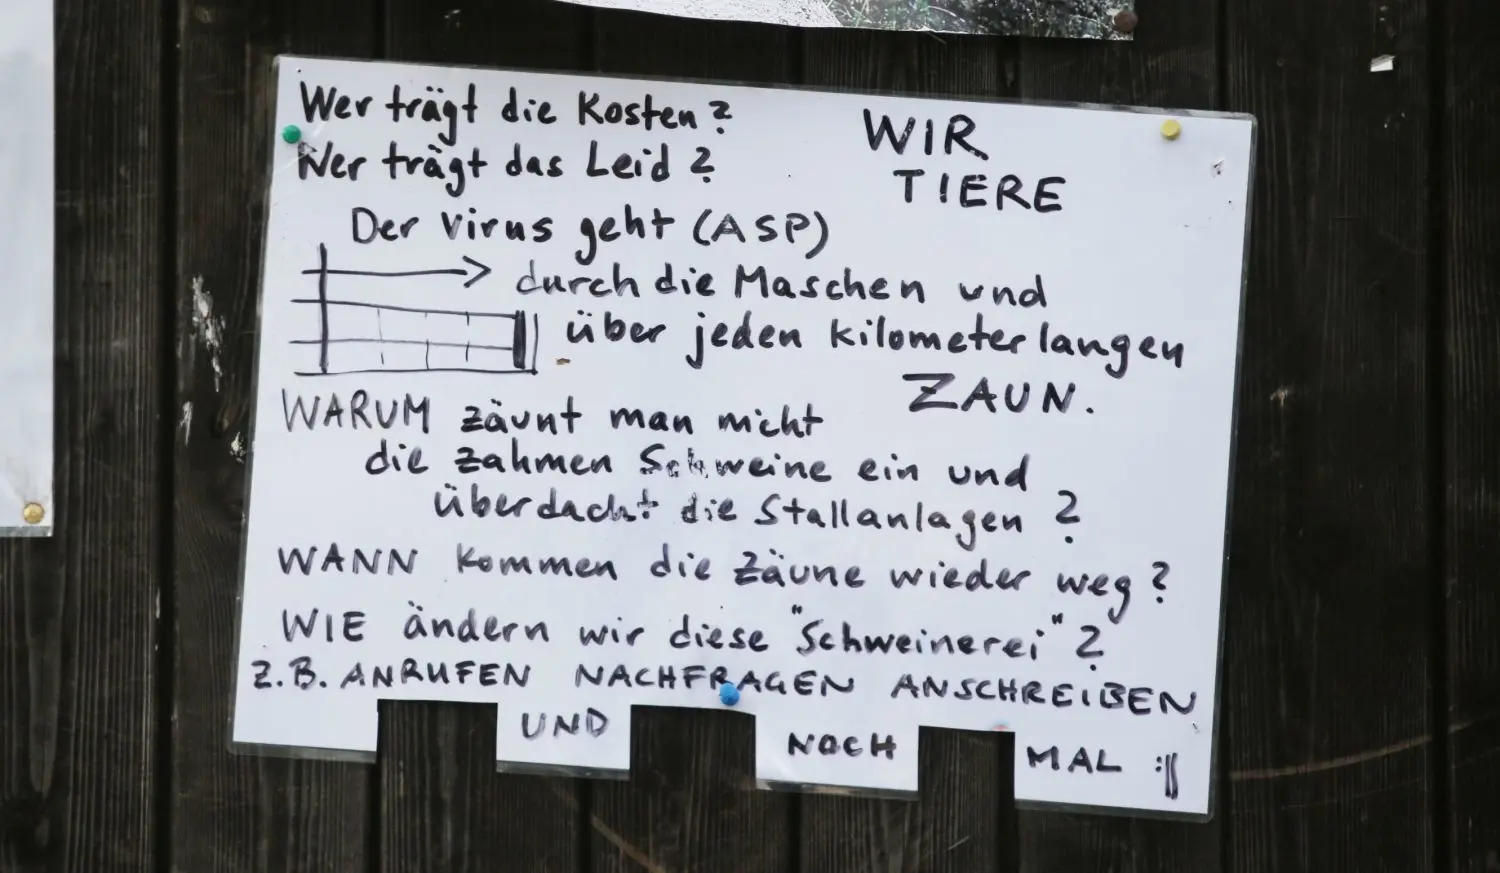 Wer trägt die Kosten?
Wer trägt das Leid?
WIR
TIERE
Der Virus geht (ASP)
durch die Maschen und
über jeden kilometerlangen
ZAUN.
WARUM zäunt man nicht
die zahmen Schweine ein und
überdacht die Stallanlagen?
WANN kommen die Zäune wieder weg?
WIE ändern wir diese "Schweinerei"?
Z.B. ANRUFEN NACHFRAGEN ANSCHREIBEN
UND NOCH MAL :||